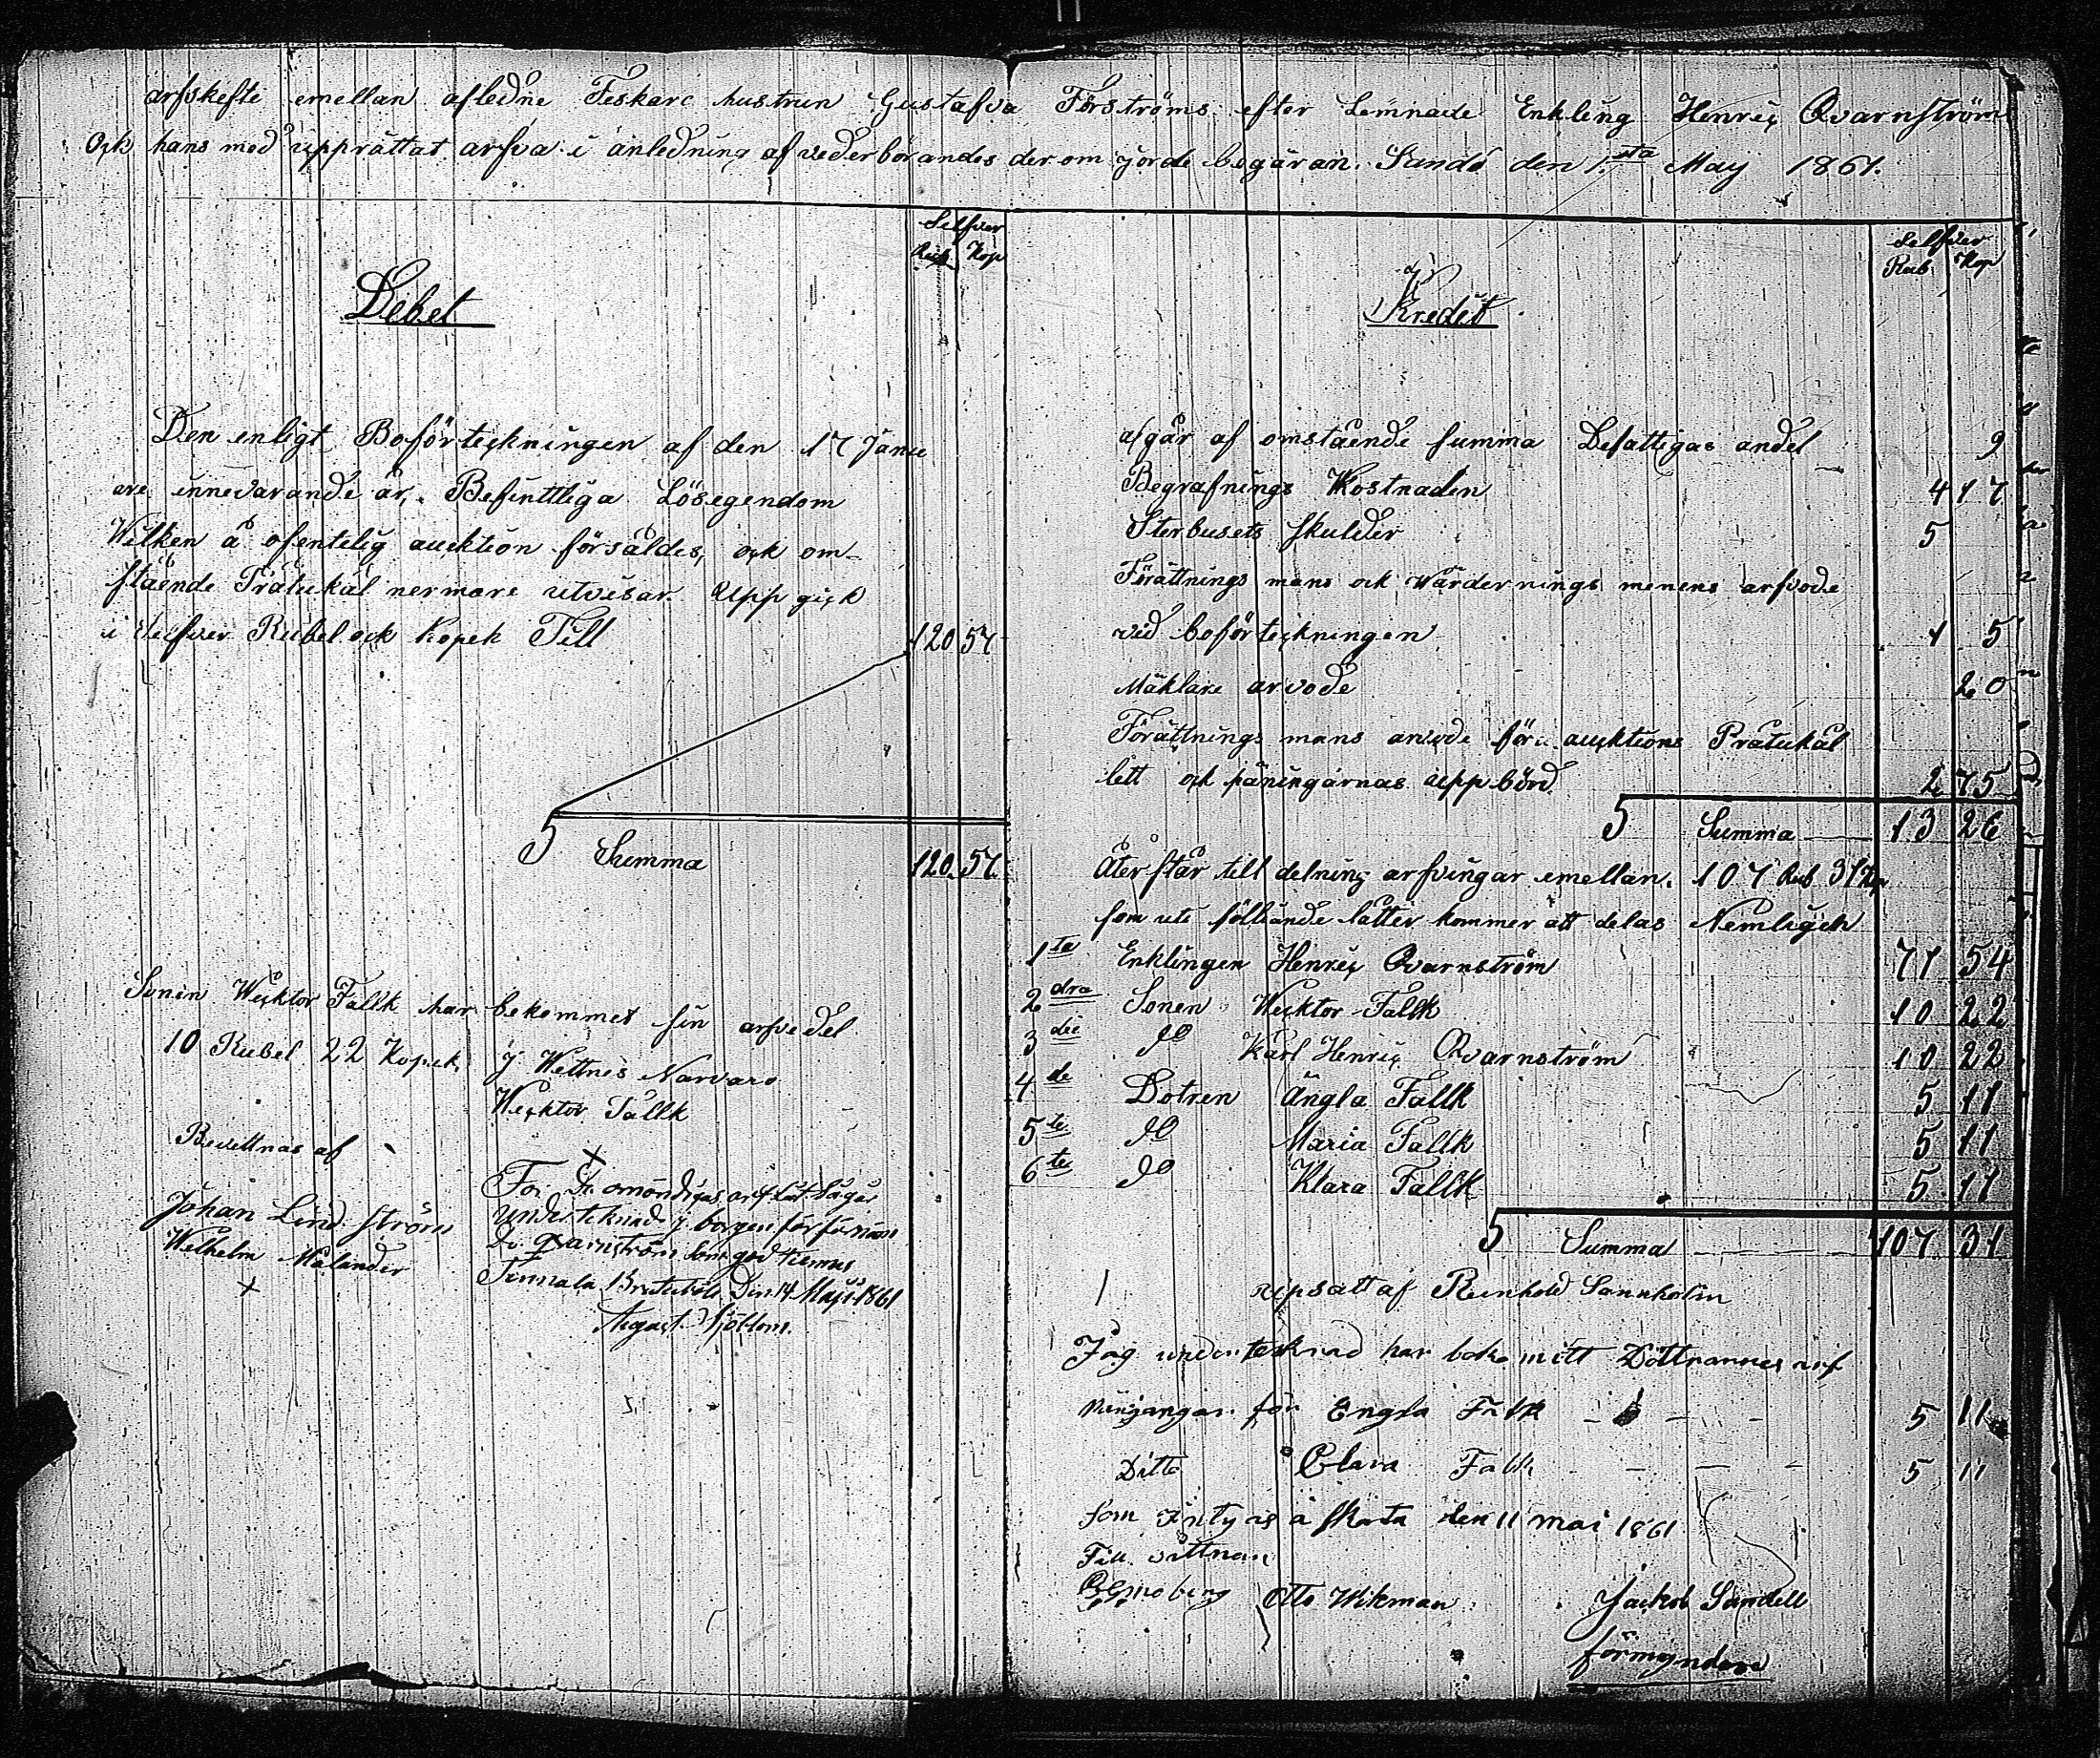 arfskefte emellan afledne Feskare hustrun Gustafva Forströms efter Lemnade Enkling Henriç Qvarnström
Oçk hans med upprättat arfva i anledning af vederbörandes derom gjorde begäran. Sandö den 1.sta May 1861.
Selfver
Rub. Kop
Debet
Den enligt Boförteçkningen af den 17 Janu
are innevarande år, Befinttliga Lösegendom
Wilken å ofentelig aucktion försäldes, oçk om-
stående Pråtukål nermare utvisar. Upp giçk
i Selfver Rubel oçk Kopek Till 120 57
S Summa 120. 57.
Sonen Wecktor Fallk har bekommet sin arfvedel
10 Rubel 22 Kopek, J Wettnes Narvaro
Wecktor Fallk
Bevettnas af
Johan Lind ström
Welhelm Malander
+
+
För De omöndigas arfs
Underteknad j borgen för
Qvarnström som god
Tennala Den 14 Maji 1861
August Sjöblom.
Selfver
Rub Kop
Kredit
afgår af omstående summa Defattigas andel 9
Begrafnings Kostnaden 4 17
Sterbusets skulder 5
Förättnings mans ock Wärdernings menens arfvode
vid boförteçkningen 1 5
Mäklare arvode 20
Förättnings mans arvode för aucktions Pråtukål
lett ock päningarnas uppbörd. 2 75
S Summa 13 26
Återstår till delning arfvingar emellan. 107 Rub 31 Kop
som uti följande lätter kommer att delas Nemligen
1ta Enklingen Henriç Qvarnström 71 54
2dra Sonen Wecktor Fallk 10 22
3die do Karl Henriç Qvarnström 10 22
4de Dotren Ängla Fallk 5 11
5te do Maria Fallk 5 11
6te do Klara Fallk 5 11
S Summa 107 31
upsatt af Reinhold Sannholm
Jag undertecknad har bekomitt Döttrarnes arf
för Engla Falk 5 11
Ditto Clara Falk 5 11
som intygas å Skarta den 11 mai 1861
Till vittnan
Otto Wikman Jackob Sandell
förmyndare